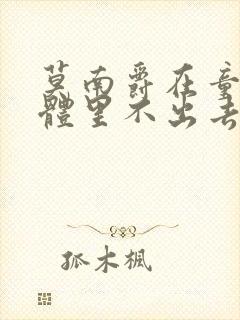 莫南爵在童
體里不出去
孤木楓